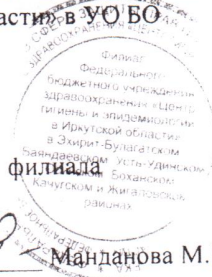 асти» в УО БО
Филиал
Федерального
бюджетного учреждения
здравоохранения «Центр
гигиены и эпидемиологии
в Иркутской области»
в Эхирит-Булагатском
Баяндаевском Усть-Удинском
Боханском
Качугском и Жигаловском
районах
филиала
Манданова М.